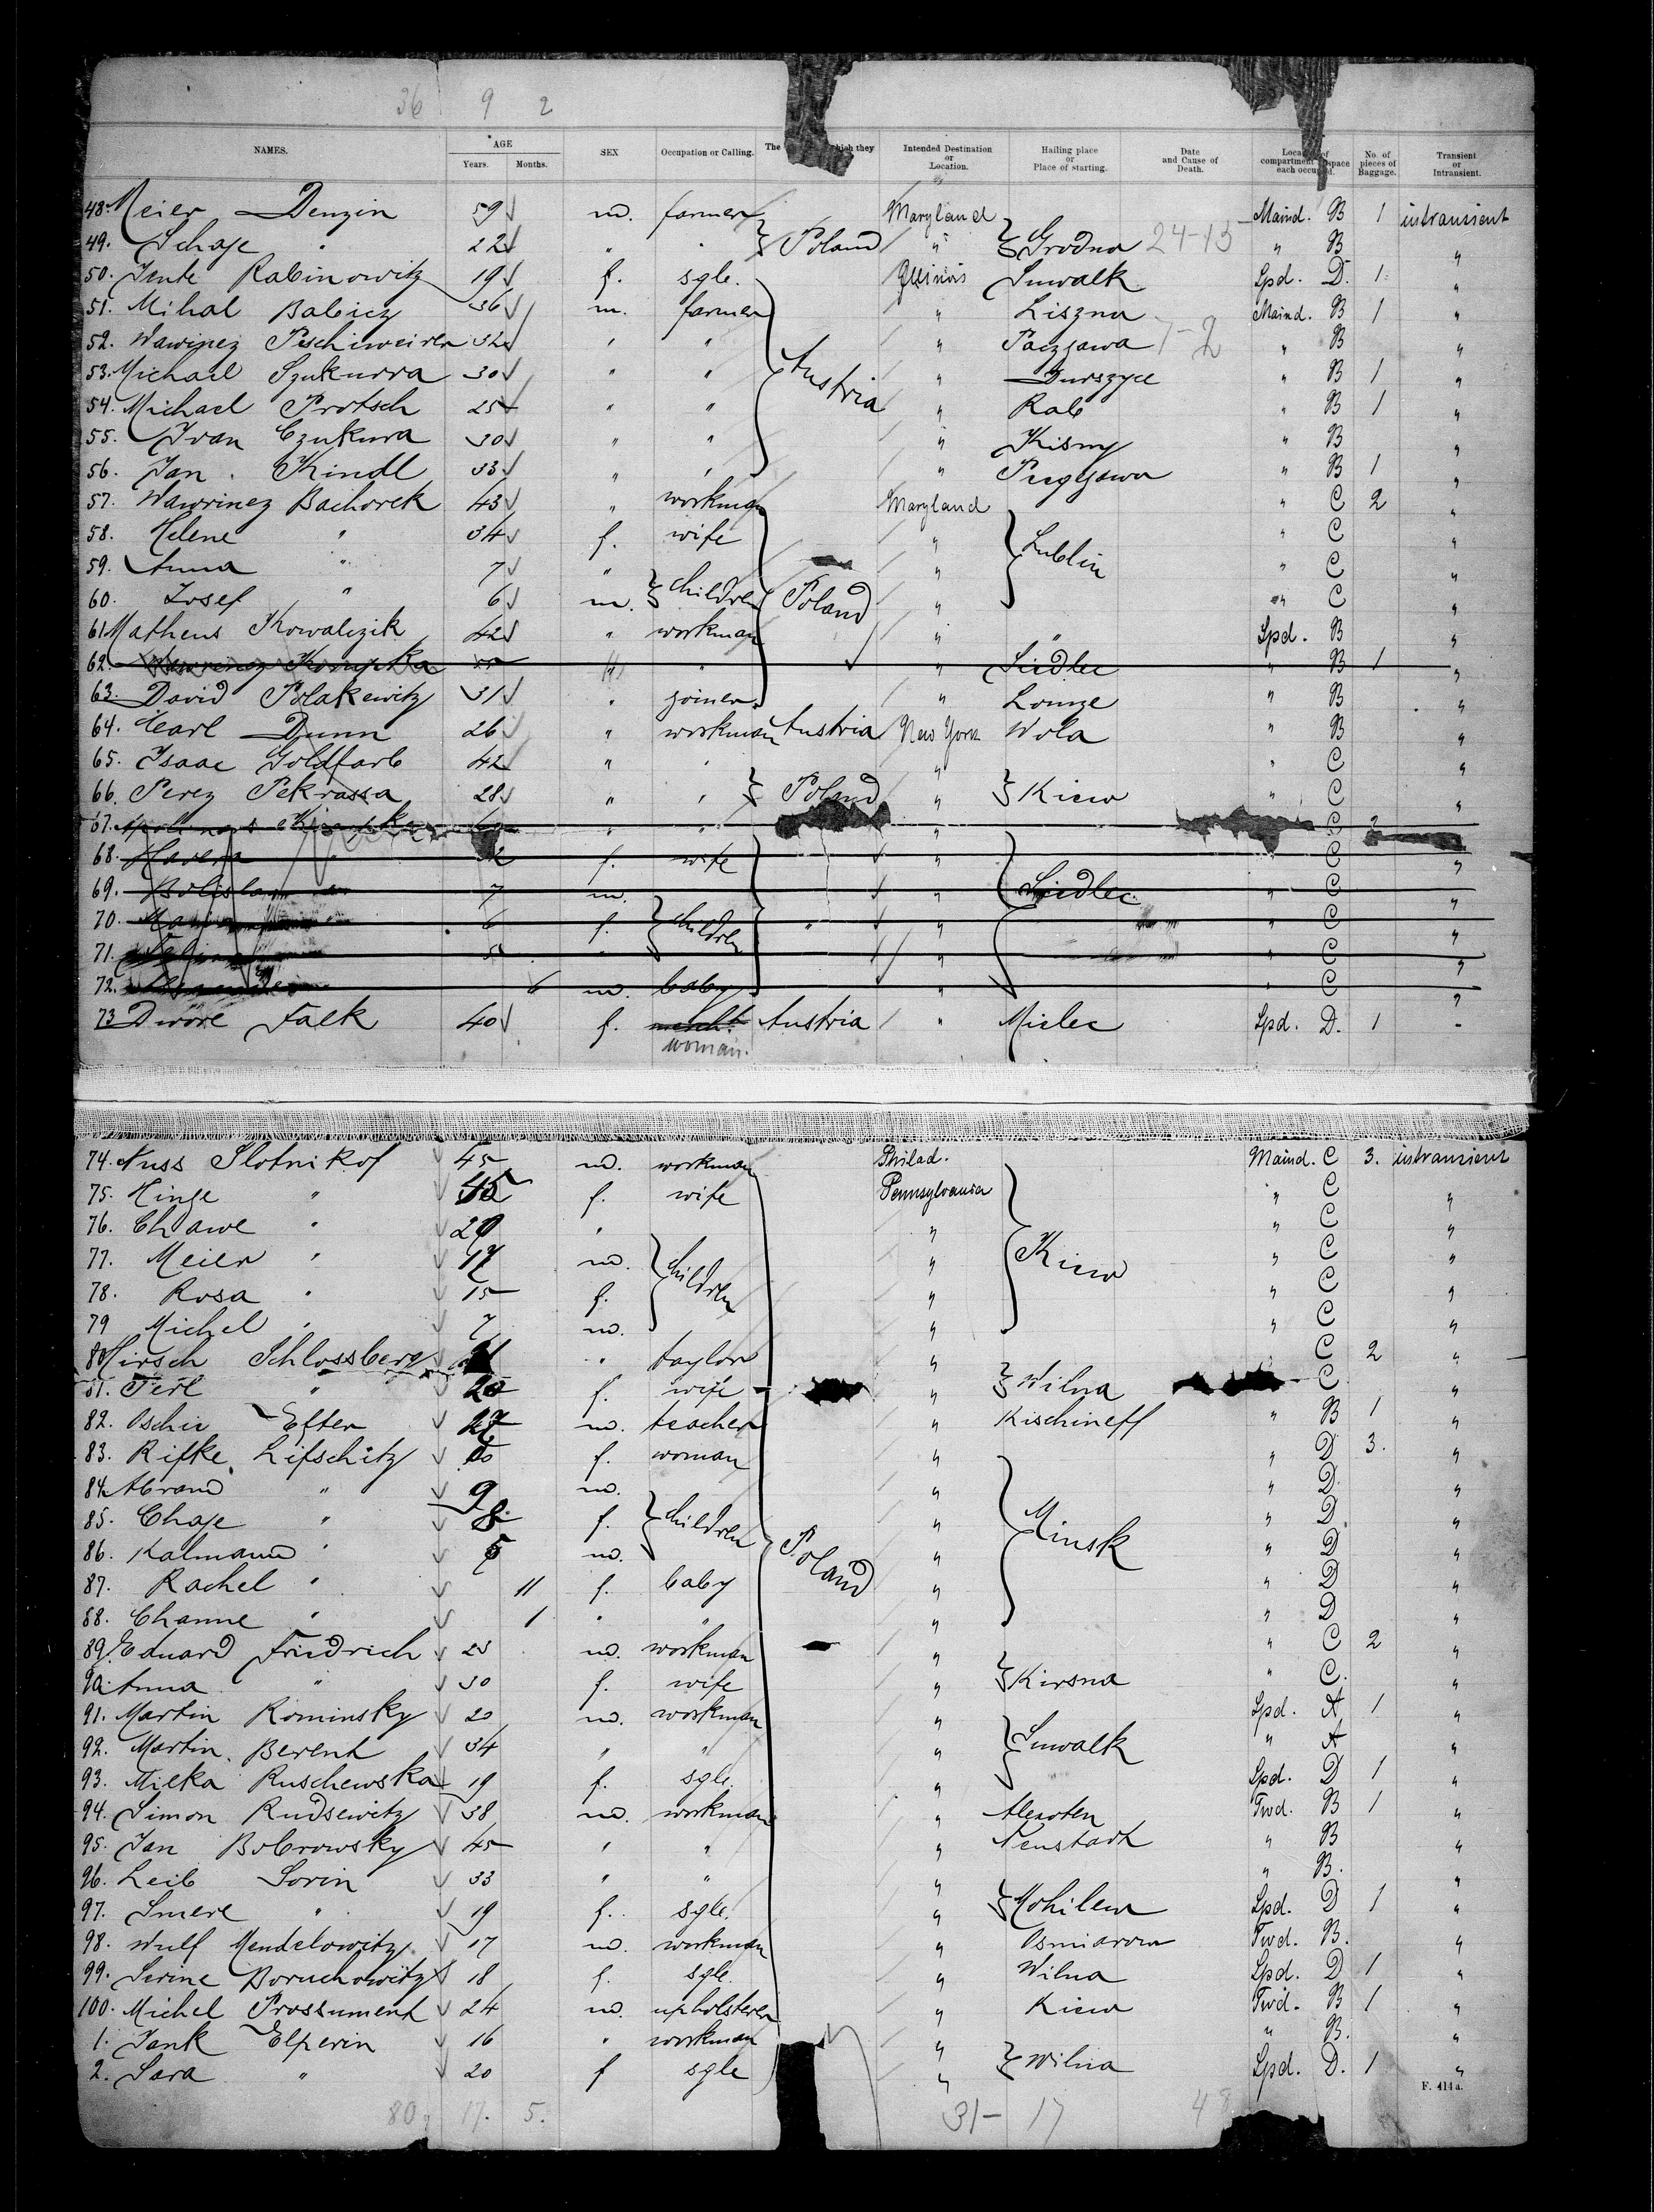 36 9 2
NAMES. AGE Years. Months. SEX Occupation or Calling. The which they Intended Destination or Location. Hailing place or Place of starting. Date and Cause of Death. Location of compartment space each occupied. No. of pieces of Baggage. Transient or Intransient.
48. Meier Denzin 59 m. farmer Poland Maryland Grodno 24-13 Maind. B 1 intransient
49. Schaje " 22 " " " " B "
50. Jente Rabinowitz 19 f. sgle. Illinois Suwalk Spd. D. 1 "
51. Mihal Babicz 36 m. farmer Austria " Liszna Maind. B 1 "
52. Wawinez 32 " " " " B "
53. Michael Szukurra 30 " " " " B 1 "
54. Michael Protsch 25 " " " Rab " B 1 "
55. Ivan Czukura 30 " " " Kismy " B "
56. Jan. Kindl 33 " " " " B 1 "
57. Wawrinez Bachorek 43 " workman Poland Maryland Lublin " C 2 "
58. Helene " 34 f. wife " " C "
59. Anna " 7 " children " " C "
60. Josef " 6 m. " " C "
61. Matheus Kowalczik 42 " workman " " Spd. B "
62. " " Siedlec " B 1 "
63. David Polakewitz 31 " joiner " Lomze " B "
64. Carl Dunn 26 " workman Austria New York Wola " B "
65. Isaac Goldfarb 42 " " Poland " Kiew " C "
66. Perez Pekrassa 28 " " " " C "
67. " " " C
68. f. wife " Siedlec C "
69. 7 m. " " C "
70. 6 f. children " " " C "
71. " " " C "
72. 6 m. baby " " C "
73 Dwore Falk 40 f. Austria " Mielec Spd. D. 1 "
woman.
74. Nuss Slotnikof 45 m. workman Philad. Maind. C 3. intransient
75. Hinge " 45 f. wife Pennsylvania Kiew " C "
76. Chawe " 20 " " " C "
77. Meier " 17 m. children " " C "
78. Rosa " 15 f. " " C "
79 Michel " 7 m. " " C "
80 Hirsch Schlossberg " taylor " Wilna C 2 "
81. Perl " f. wife " C "
82. Efter 27 m. teacher " Kischineff " B 1 "
83. Rifke Lifschitz f. woman " Minsk " D 3. "
84. Abram " 9 m. " " D "
85. Chaje " 8 f. children " " D "
86. Kalmann " 5 m. Poland " " D "
87. Rachel " 11 f. baby " " D "
88. Channe " 1 " " " " D "
89. Eduard Fridrich 25 m. workman " Kirsna " C 2 "
90. Anna " 30 f. wife " " C. "
91. Martin Rominsky 20 m. workman " Suwalk Spd. A 1 "
92. Martin Berent 34 " " " " A "
93. Milka Ruschewska 19 f. sgle. " Spd. D 1 "
94. Simon Rudsewitz 38 m. workman " Alexoten Fwd. B 1 "
95. Jan Bobrowsky 45 " " " Neustadt " B "
96. Leib Sorin 33 " " " Mohilew " B. "
97. Smere " 19 f. sgle. " Spd. D 1 "
98. Wulf Mendelowitz 17 m. workman " Fwd. B. "
99. Serine Boruchowitz 18 f. sgle. " Wilna Spd. D 1 "
100. Michel Prossument 24 m. upholsterer " Kiew Fwd. B 1 "
1. Jank Elperin 16 " workman " Wilna " B. "
2. Sara " 20 f sgle " Spd. D. 1 "
F. 414a.
80 17. 5. 31- 17